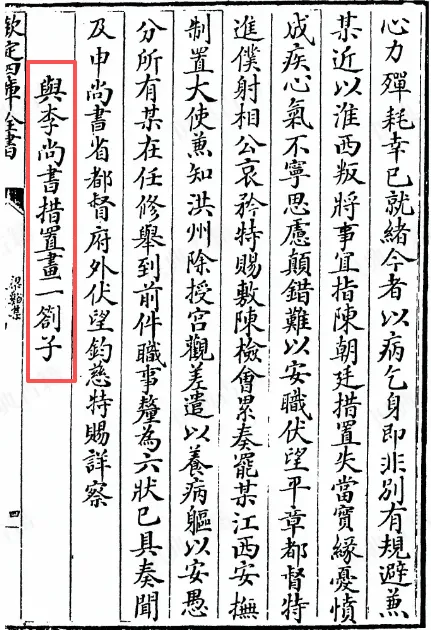 心力殫耗幸已就緒今者以病乞身即非别有規避兼
某近以淮西叛將事宜指陳朝廷措置失當實緣憂憤
成疾心氣不寧思慮顛錯難以安職伏望平章都督特
進僕射相公哀矜特賜敷陳檢㑹累奏罷某江西安撫
制置大使兼知洪州除授宮觀差遣以養病軀以安愚
分所有某在任修舉到前件職事釐為六狀已具奏聞
及申尚書省都督府外伏望鈞慈特賜詳察
與李尚書措置畫一劄子
欽定四庫全書
梁谿集